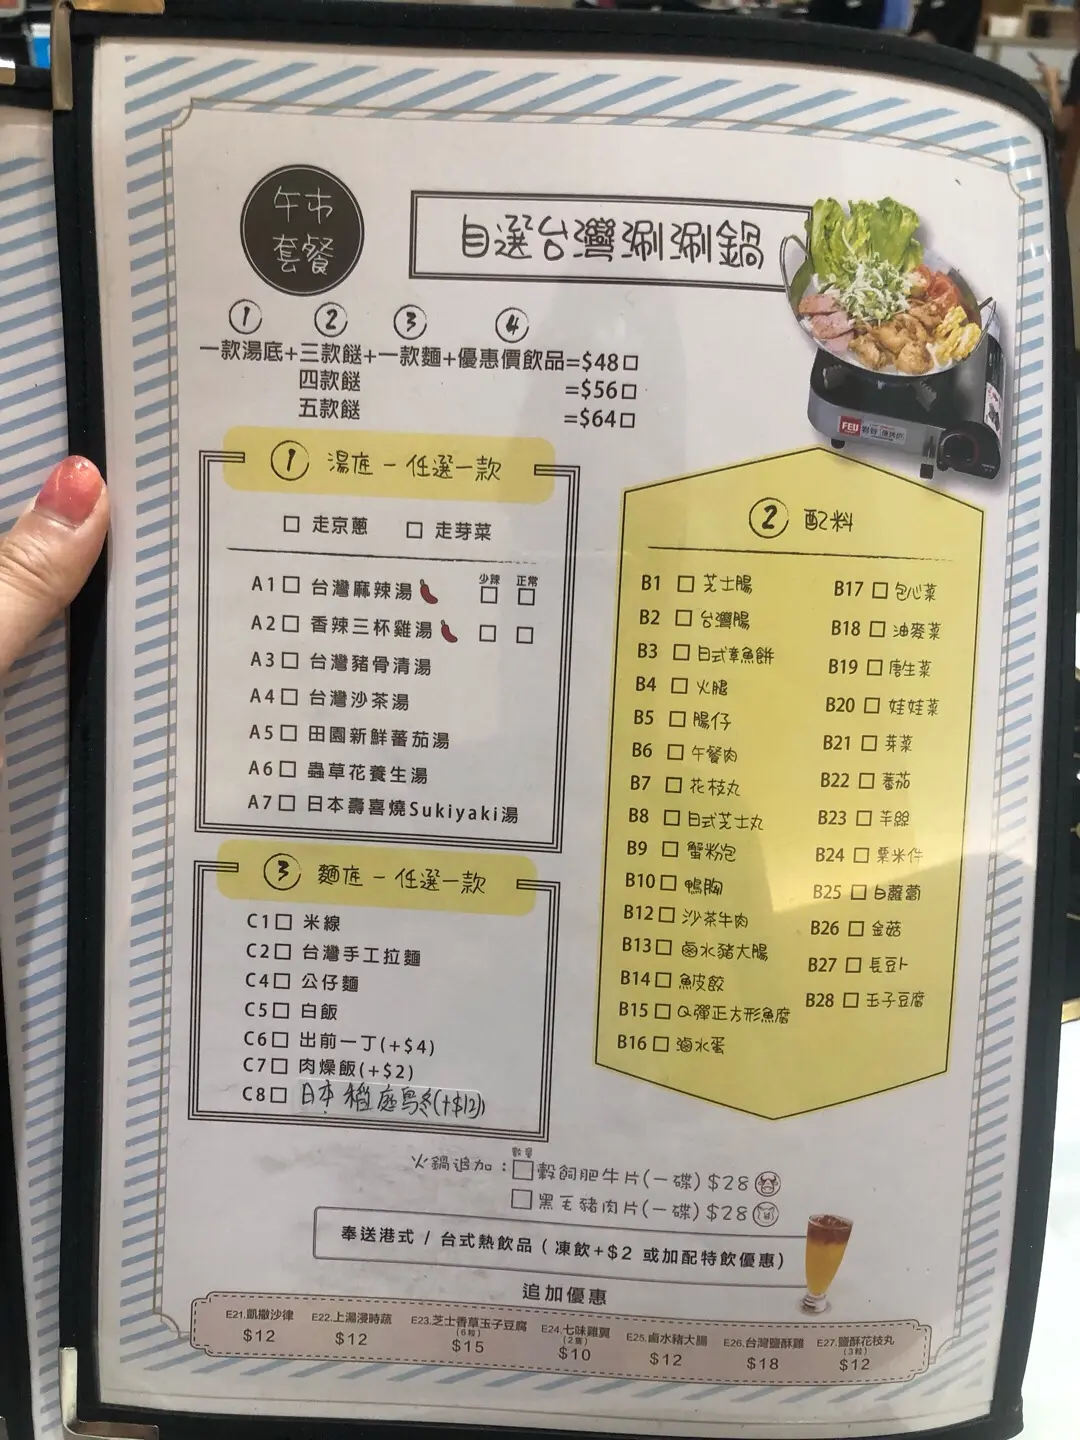 午市
套餐
自選台灣涮涮鍋
① ② ③ ④
一款湯底+三款餸+一款麵+優惠價飲品=$48□
四款餸 =$56□
五款餸 =$64□
① 湯底 - 任選一款
□ 走京蔥 □ 走芽菜
少辣 正常
A1□ 台灣麻辣湯 □ □
A2□ 香辣三杯雞湯 □ □
A3□ 台灣豬骨清湯
A4□ 台灣沙茶湯
A5□ 田園新鮮蕃茄湯
A6□ 蟲草花養生湯
A7□ 日本壽喜燒Sukiyaki湯
③ 麵底 - 任選一款
C1□ 米線
C2□ 台灣手工拉麵
C4□ 公仔麵
C5□ 白飯
C6□ 出前一丁(+$4)
C7□ 肉燥飯(+$2)
C8□ 日本稻庭烏冬(+$12)
② 配料
B1 □ 芝士腸
B2 □ 台灣腸
B3 □ 日式章魚餅
B4 □ 火腿
B5 □ 腸仔
B6 □ 午餐肉
B7 □ 花枝丸
B8 □ 日式芝士丸
B9 □ 蟹粉包
B10□ 鴨胸
B12□ 沙茶牛肉
B13□ 鹵水豬大腸
B14□ 魚皮餃
B15□ Q彈正方形魚腐
B16□ 滷水蛋
B17 □ 包心菜
B18 □ 油麥菜
B19 □ 唐生菜
B20 □ 娃娃菜
B21 □ 芽菜
B22 □ 蕃茄
B23 □ 芋絲
B24 □ 粟米件
B25 □ 白蘿蔔
B26 □ 金菇
B27 □ 長豆卜
B28 □ 玉子豆腐
數量
火鍋追加：□穀飼肥牛片(一碟)$28
□黑毛豬肉片(一碟)$28
奉送港式 / 台式熱飲品 ( 凍飲+$2 或加配特飲優惠)
追加優惠
E21.凱撒沙律 $12
E22.上湯浸時蔬 $12
E23.芝士香草玉子豆腐 (6粒) $15
E24.七味雞翼 (2隻) $10
E25.鹵水豬大腸 $12
E26.台灣鹽酥雞 $18
E27.鹽酥花枝丸 (3粒) $12